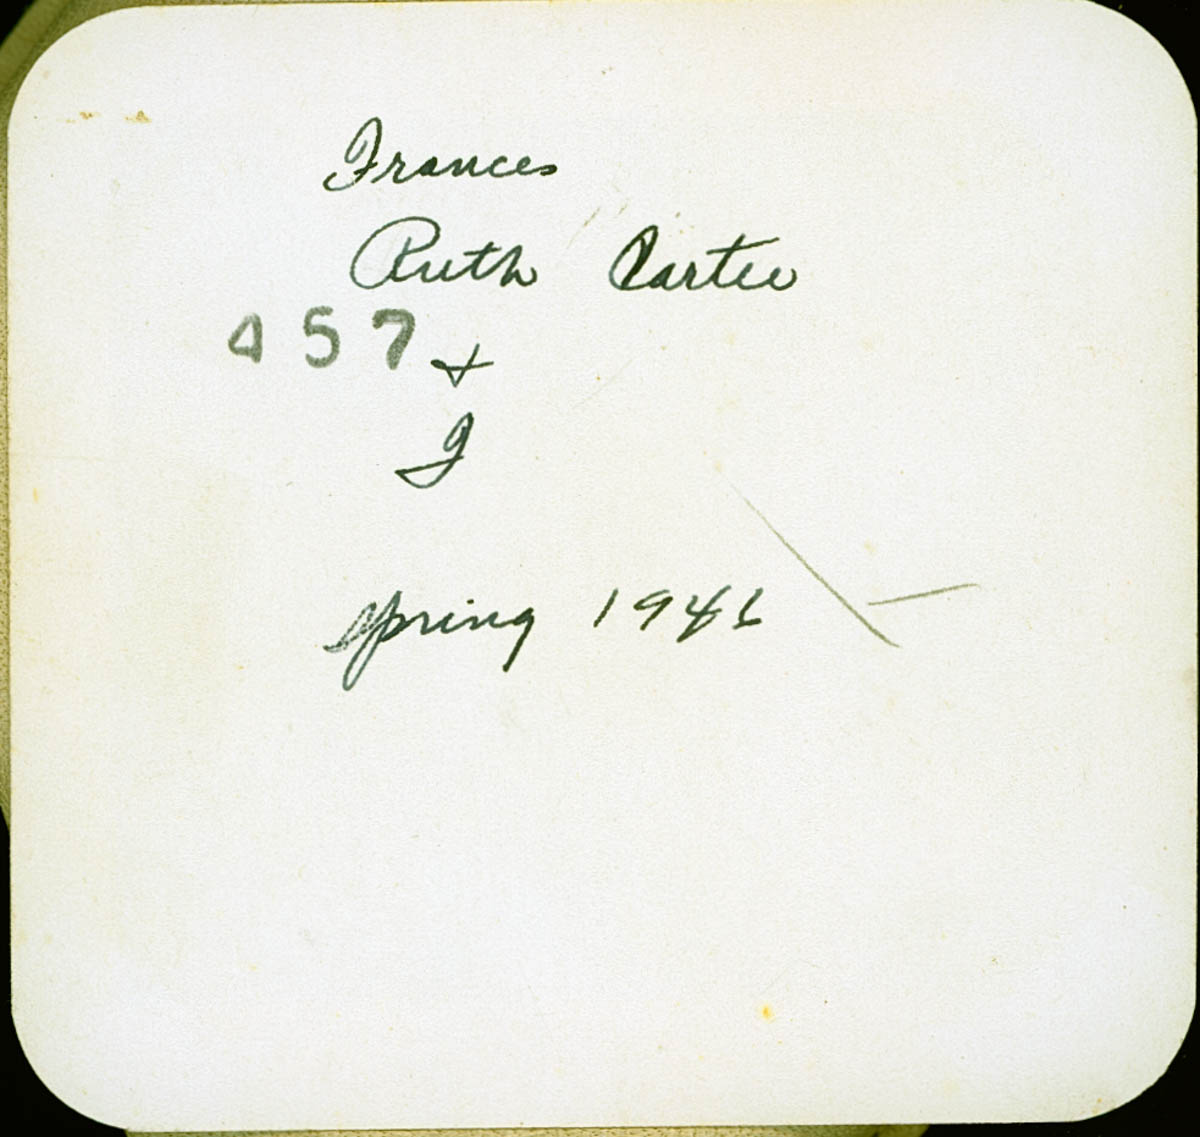 Frances
Ruth Cartee
457 +
I
Spring 1946